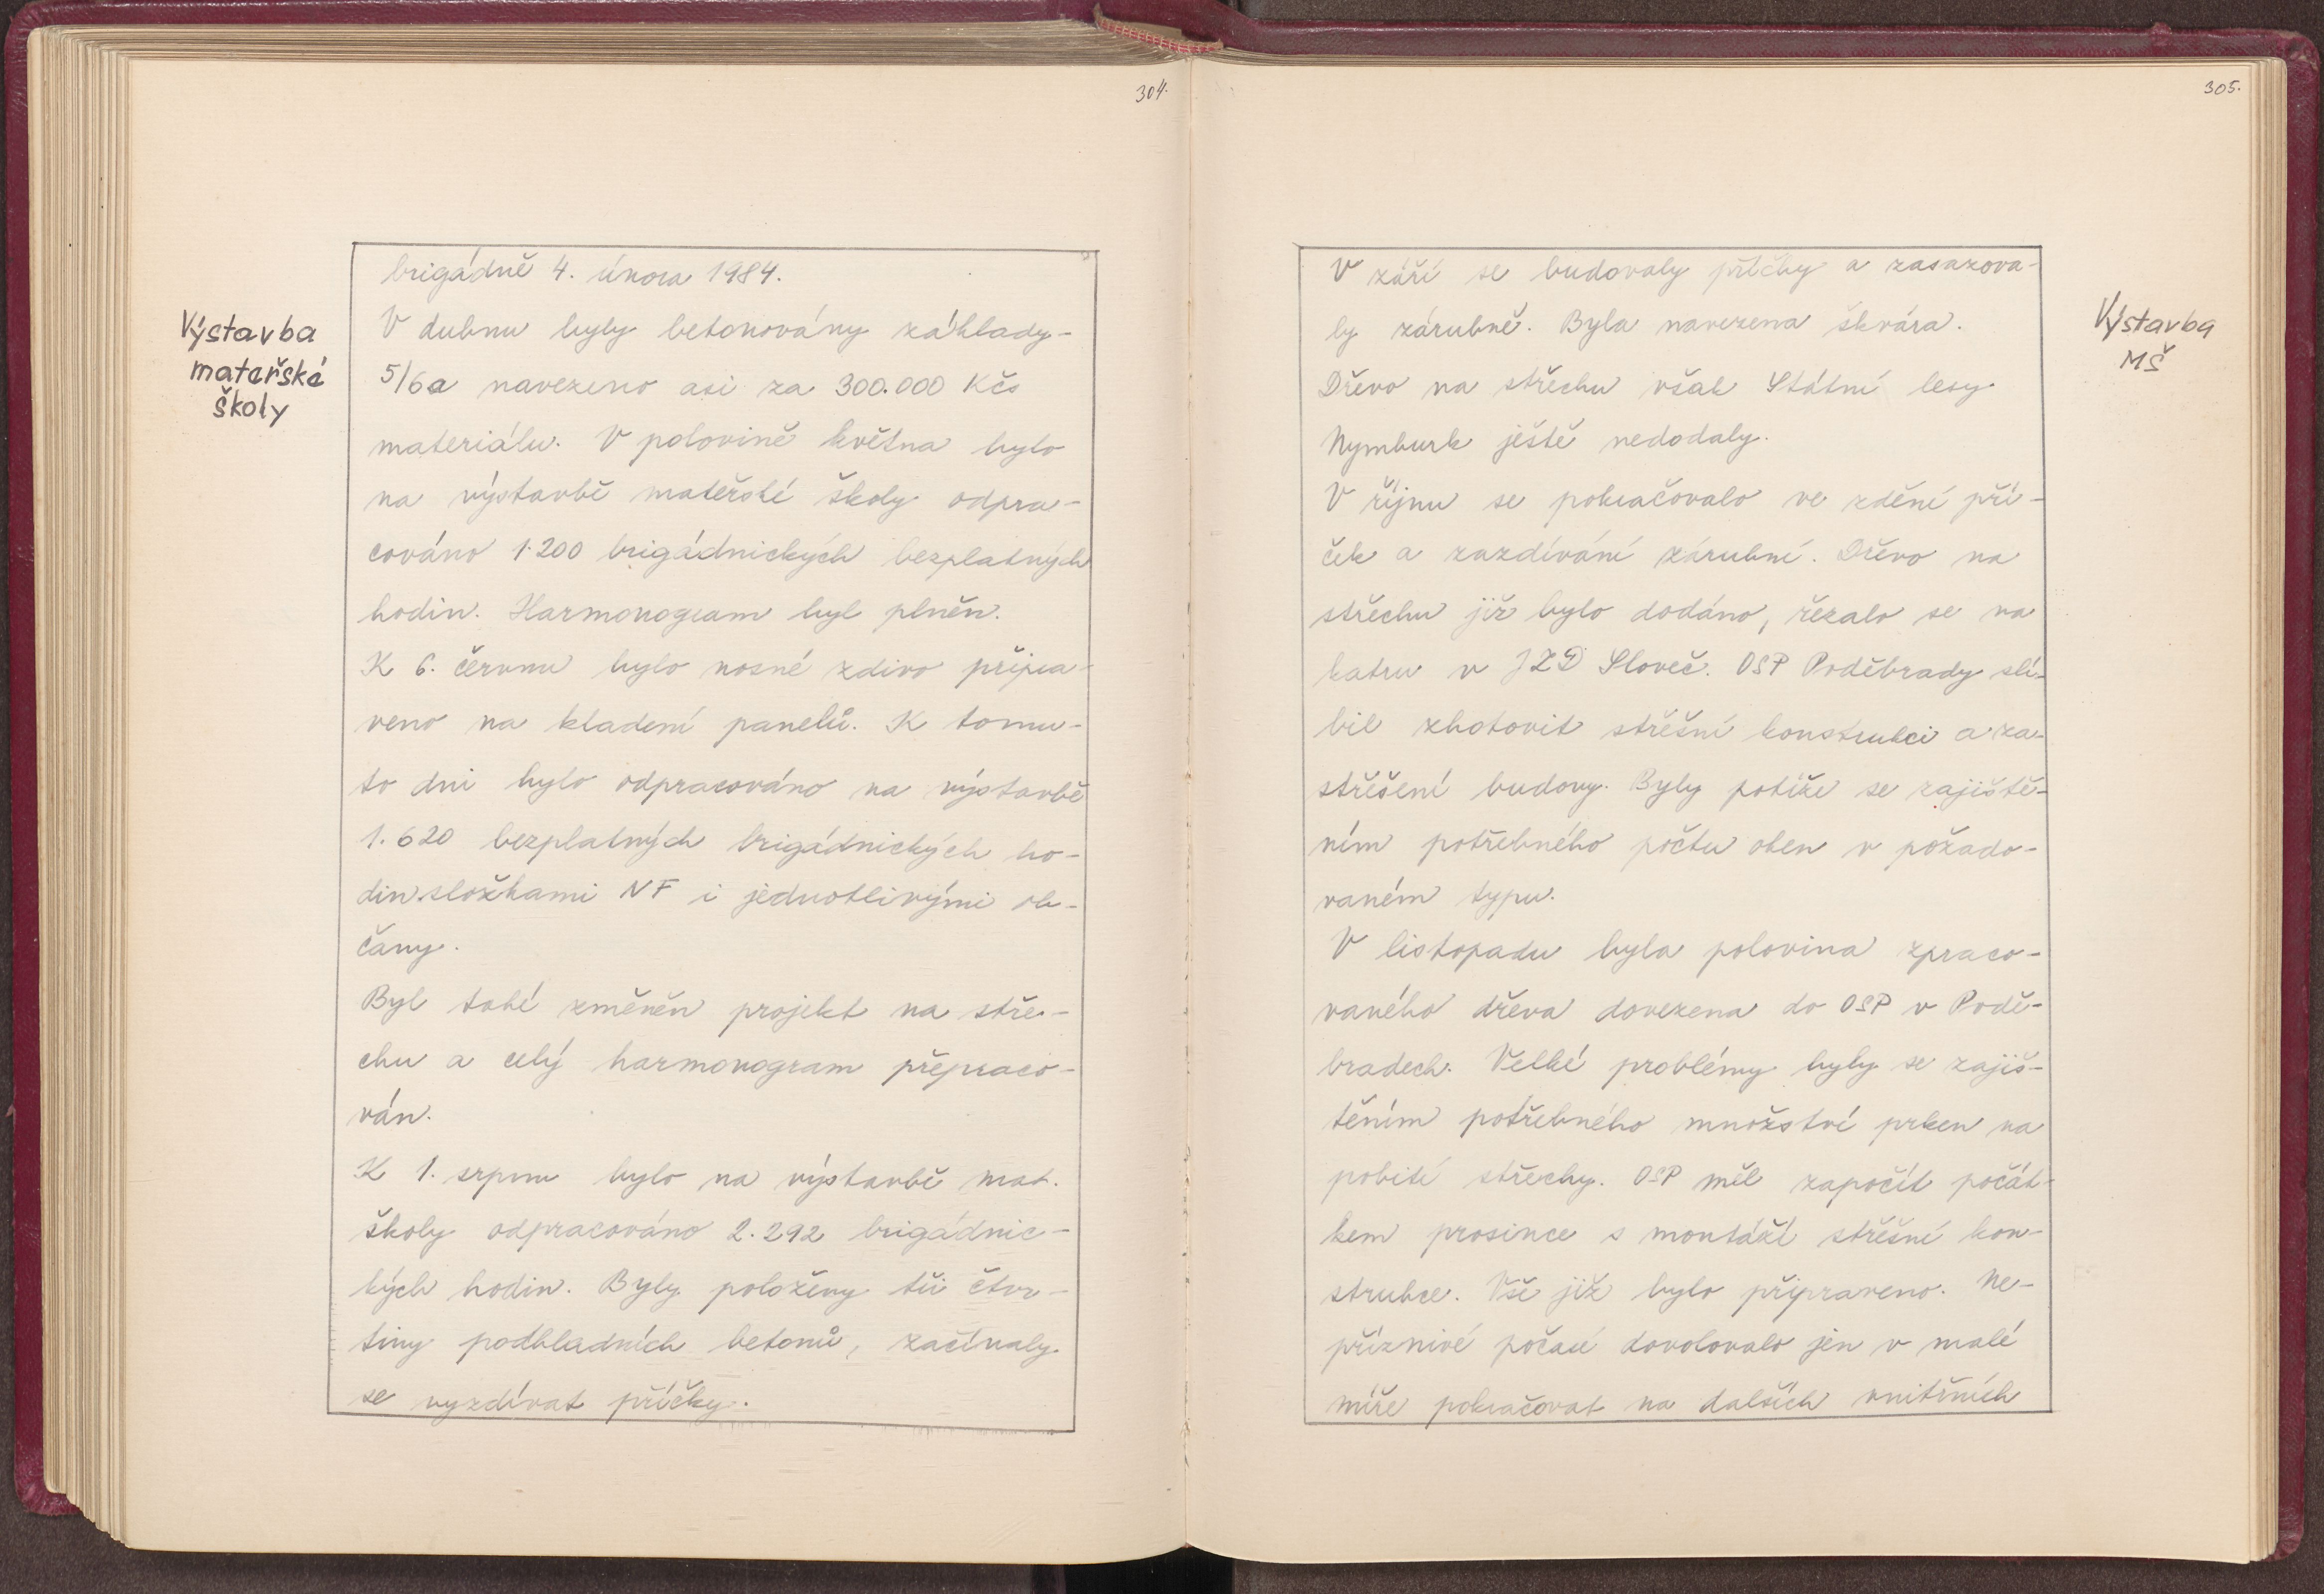 304.
Výstavba
mateřské
školy
brigádně 4. února 1984.
V dubnu byly betonovány základy -
5/6 a navezeno asi za 300.000 Kčs
materiálu. V polovině května bylo
na výstavbě mateřské školy odpra-
cováno 1.200 brigádnických bezplatných
hodin. Harmonogram byl plněn.
K 6. červnu bylo nosné zdivo připra-
veno na kladení panelů. K tomu-
to dni bylo odpracováno na výstavbě
1.620 bezplatných brigádnických ho-
din složkami NF i jednotlivými ob-
čany.
Byl také změněn projekt na stře-
chu a celý harmonogram přepraco-
ván.
K 1. srpnu bylo na výstavbě mat.
školy odpracováno 2.292 brigádnic-
kých hodin. Byly položeny tři čtvr-
tiny podkladních betonů, začínaly
se vyzdívat příčky.
305.
Výstavba
MŠ
V září se budovaly příčky a zasazova-
ly zárubně. Byla navezena škvára.
Dřevo na střechu však Státní lesy
Nymburk ještě nedodaly.
V říjnu se pokračovalo ve zdění pří-
ček a zazdívání zárubní. Dřevo na
střechu již bylo dodáno, řezalo se na
katru v JZD Sloveč. OSP Poděbrady slí-
bil zhotovit střešní konstrukci a za-
střešení budovy. Byly potíže se zajiště-
ním potřebného počtu oken v požado-
vaném typu.
V listopadu byla polovina zpraco-
vaného dřeva dovezena do OSP v Podě-
bradech. Velké problémy byly se zajiš-
těním potřebného množství prken na
pobití střechy. OSP měl započít počát-
kem prosince s montáží střešní kon-
strukce. Vše již bylo připraveno. Ne-
příznivé počasí dovolovalo jen v malé
míře pokračovat na dalších vnitřních